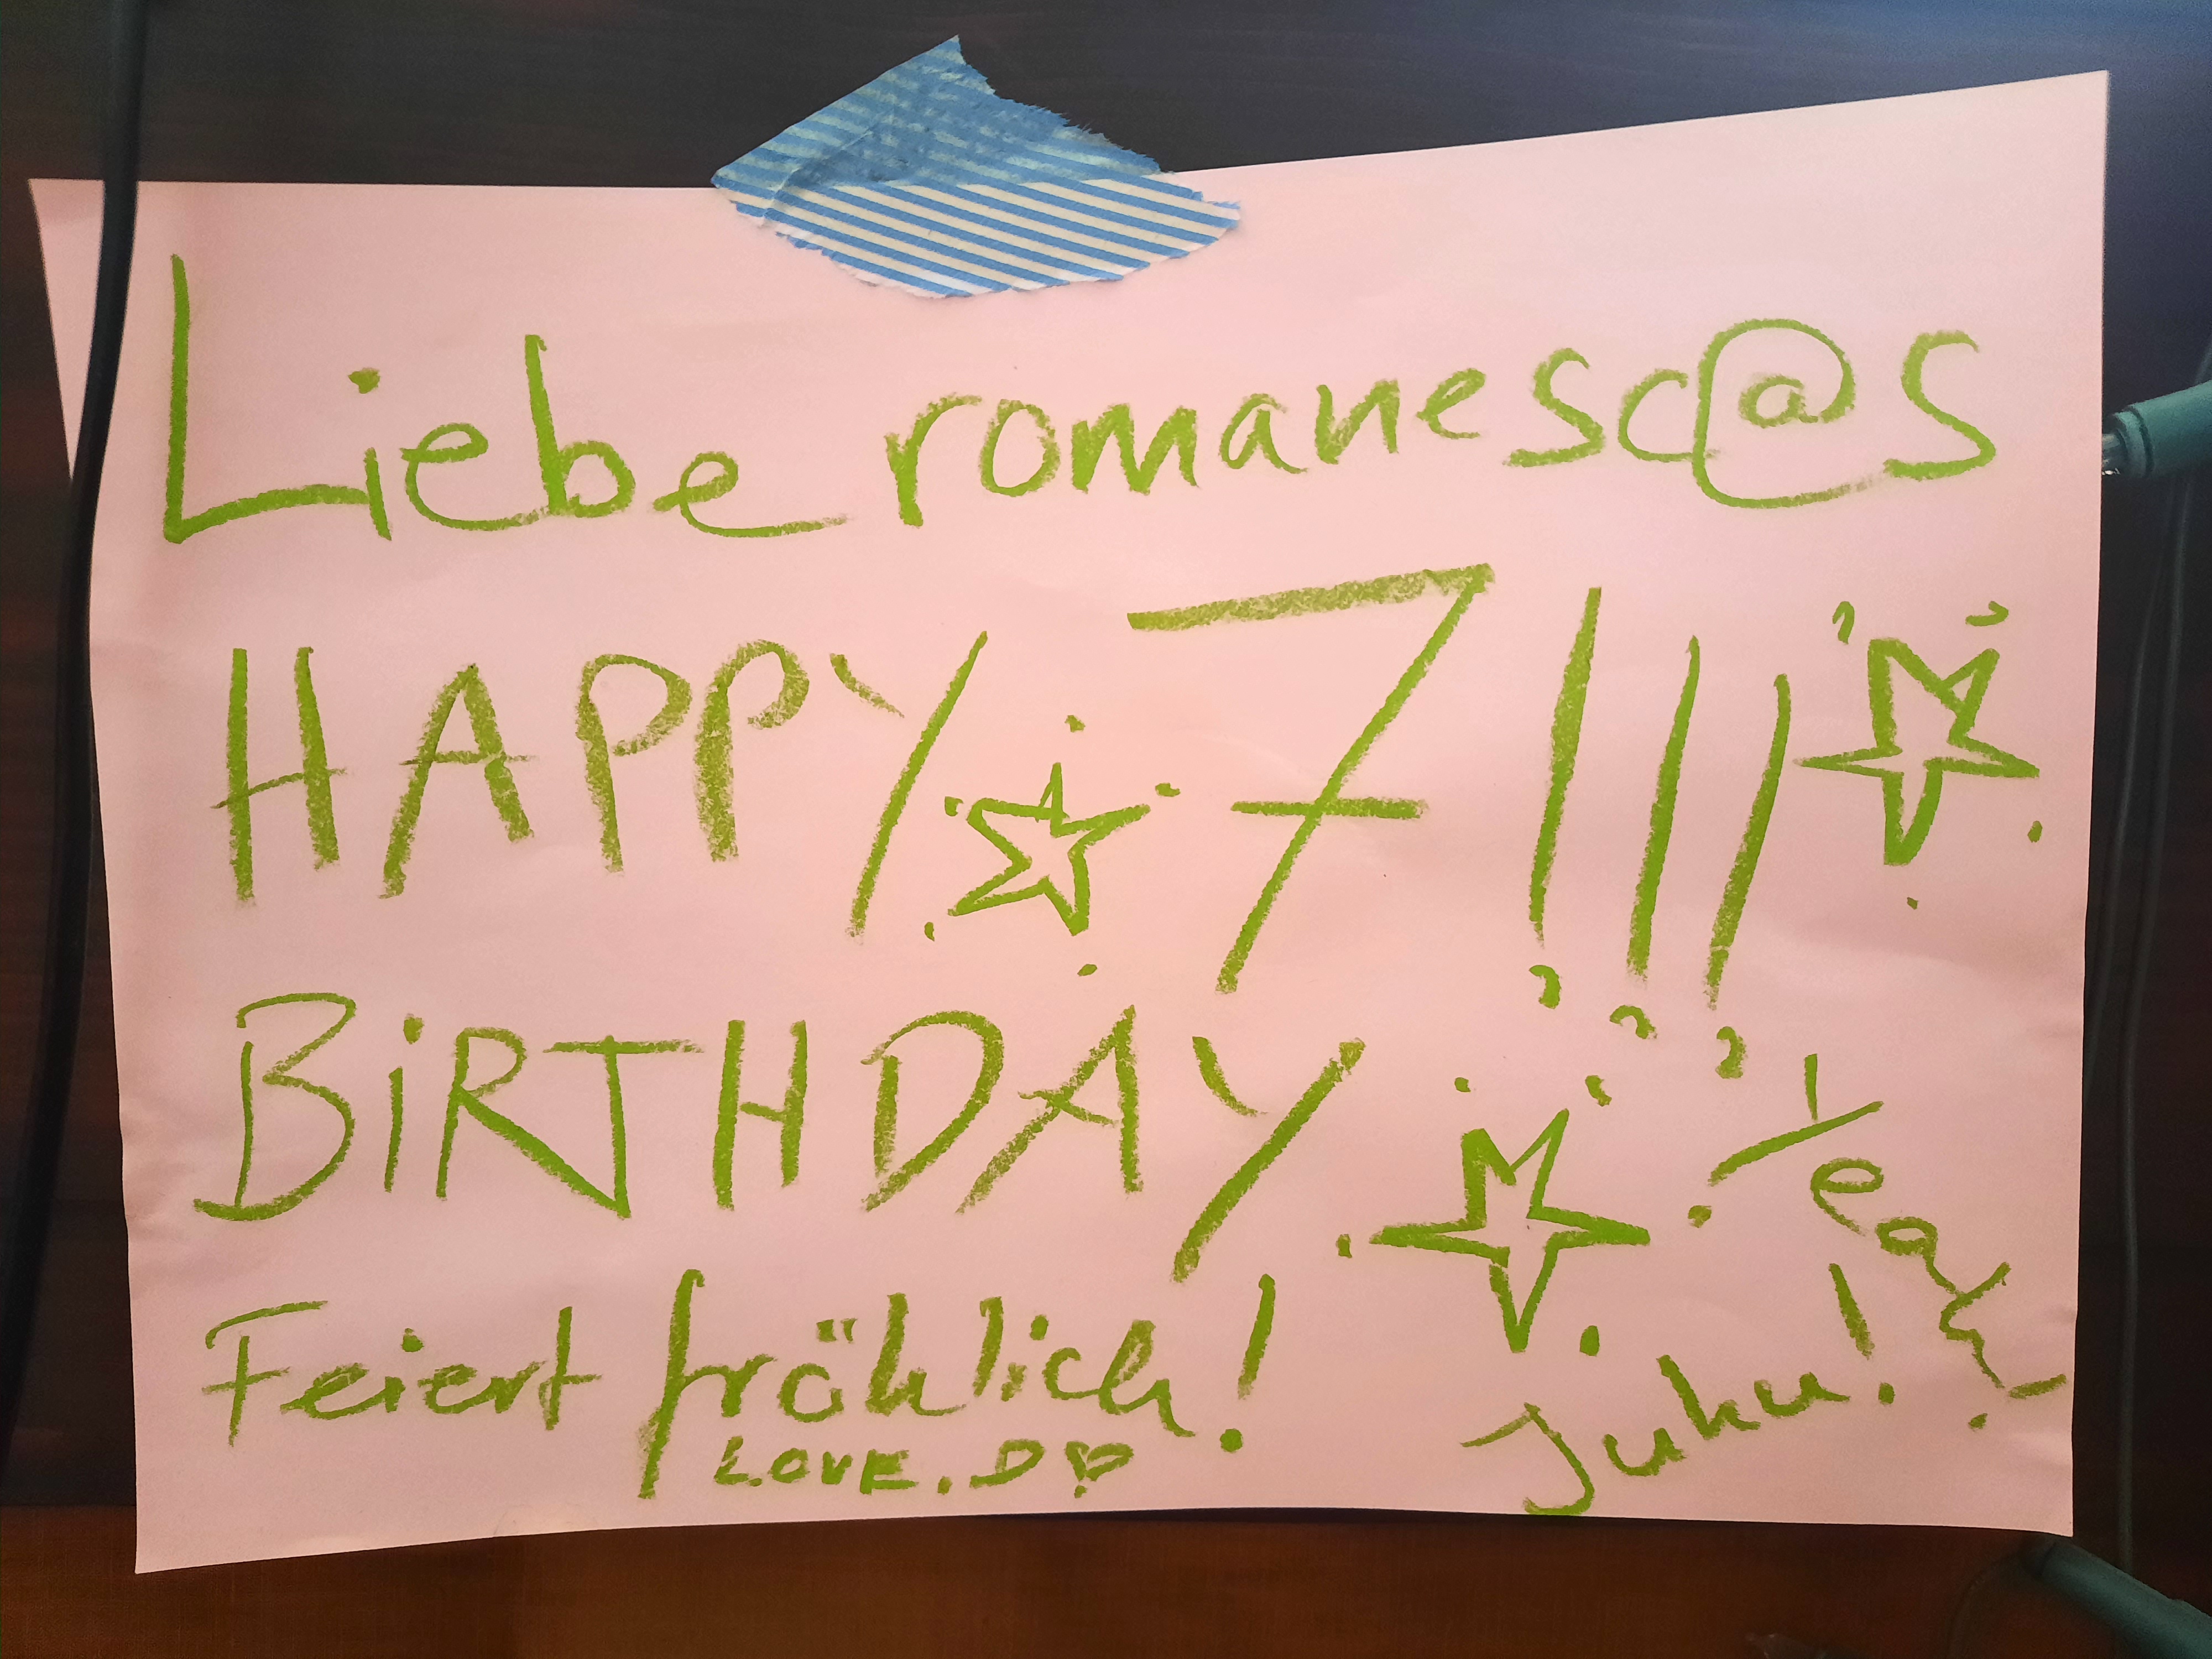 Liebe romanesc@s
HAPPY 7!!!
BiRTHDAY
Yeah!
Feiert fröhlich!
Juhu!
LOVE. D